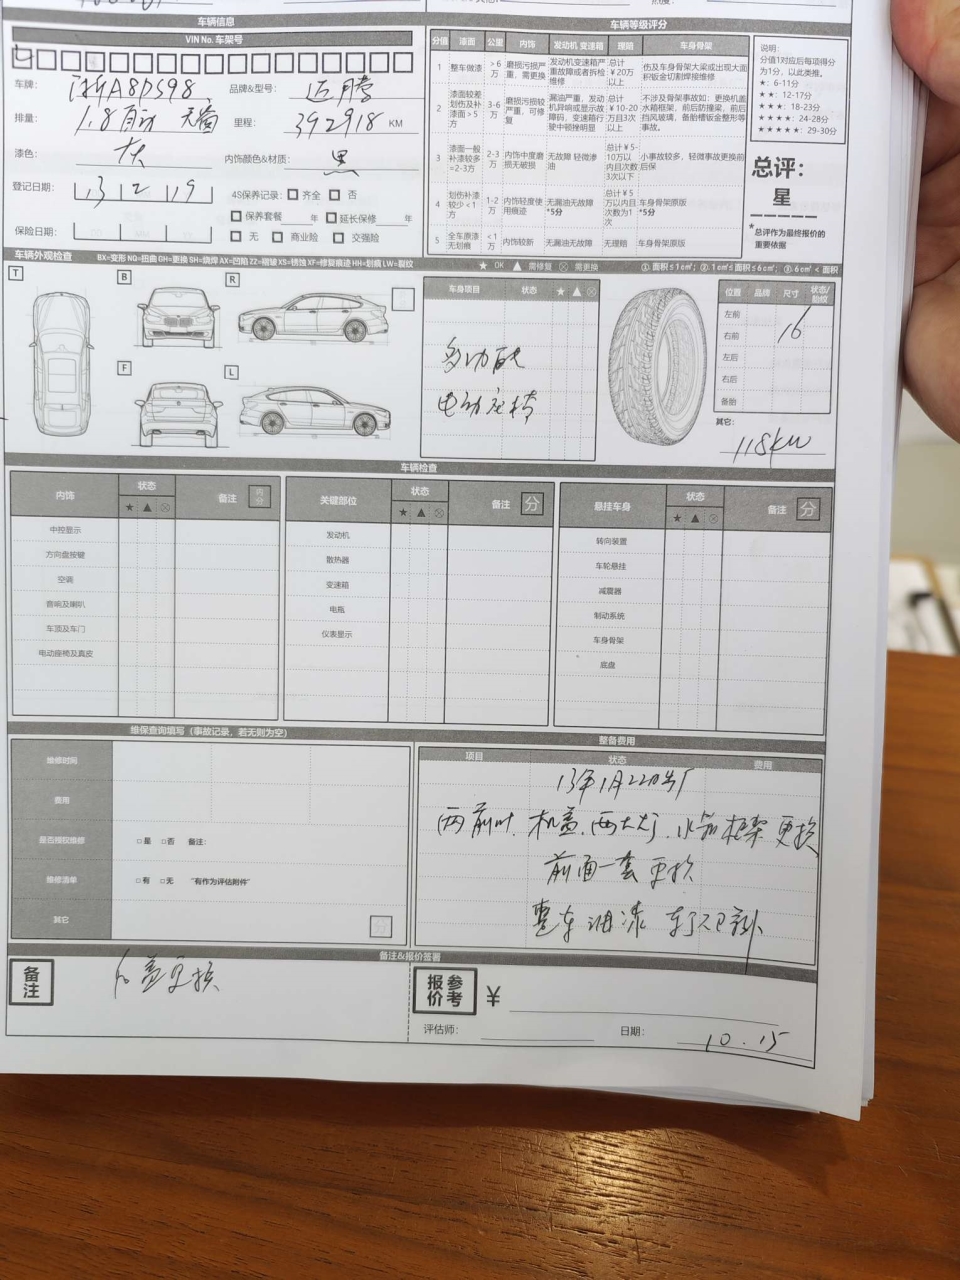 车辆信息
VIN No. 车架号
车牌: 浙A8DS98 品牌&型号: 迈腾
排量: 1.8自动 天窗 里程: 392918 KM
漆色: 灰 内饰颜色&材质: 黑
登记日期: 13 12 19 4S保养记录: 齐全 否
保养套餐 年 延长保修 年
保险日期: 无 商业险 交强险
车辆等级评分
分值 漆面 公里 内饰 发动机 变速箱 理赔 车身骨架
1 整车做漆 >6万 磨损污损严重,需更换 发动机变速箱严重故障或者拆检维修 总计¥20万以上 伤及车身骨架大梁或出现大面积钣金切割焊接维修
2 漆面较差划伤及补漆面>5方 3-6万 磨损污损较严重,可修复 漏油严重,发动机异响或显示故障码,变速箱行驶中顿挫明显 总计¥10-20万且3次以上 不涉及骨架事故如:更换机盖水箱框架,前后防撞梁,前后挡风玻璃,备胎槽钣金整形等事故。
3 漆面一般补漆较多=2-3方 2-3万 内饰中度磨损无破损 无故障 轻微渗油 总计¥5-10万以内且次数3次以下 小事故较多,轻微事故更换前后保
4 划伤补漆较少<1方 1-2万 内饰轻度使用痕迹 无漏油无故障*5分 总计¥5万以内且次数为1次 车身骨架原版*5分
5 全车原漆无划痕 <1万 内饰较新 无漏油无故障 无理赔 车身骨架原版
说明:
分值1对应后每项得分为1分,以此类推。
★: 6-11分
★★: 12-17分
★★★: 18-23分
★★★★: 24-28分
★★★★★: 29-30分
总评:
星
*总评作为最终报价的重要依据
车辆外观检查 BX=变形 NQ=扭曲 GH=更换 SH=烧焊 AX=凹陷 ZZ=褶皱 XS=锈蚀 XF=修复痕迹 HH=划痕 LW=裂纹 ★ OK ▲ 需修复 ⊗ 需更换 ①: 面积≤1c㎡; ②: 1c㎡≤面积≤6c㎡; ③: 6c㎡<面积
T B R
F L
车身项目 状态 ★ ▲ ⊗
多功能
电动座椅
位置 品牌 尺寸 状态/胎纹
左前
右前 16
左后
右后
备胎
其它:
118kw
车辆检查
内饰 状态 备注
★ ▲ ⊗
中控显示
方向盘按键
空调
音响及喇叭
车顶及车门
电动座椅及真皮
关键部位 状态 备注 分
★ ▲ ⊗
发动机
散热器
变速箱
电瓶
仪表显示
悬挂车身 状态 备注 分
★ ▲ ⊗
转向装置
车轮悬挂
减震器
制动系统
车身骨架
底盘
维保查询填写(事故记录,若无则为空)
维修时间
费用
是否授权维修 □是 □否 备注:
维修清单 □有 □无 "有作为评估附件"
其它 分
整备费用
项目 状态 费用
13年1月22日出厂
两前叶、机盖、两大灯、水箱框架 更换
前面一套 更换
整车油漆
备注&报价签署
备注 后盖更换
报价参考 ¥
评估师: 日期: 10.15